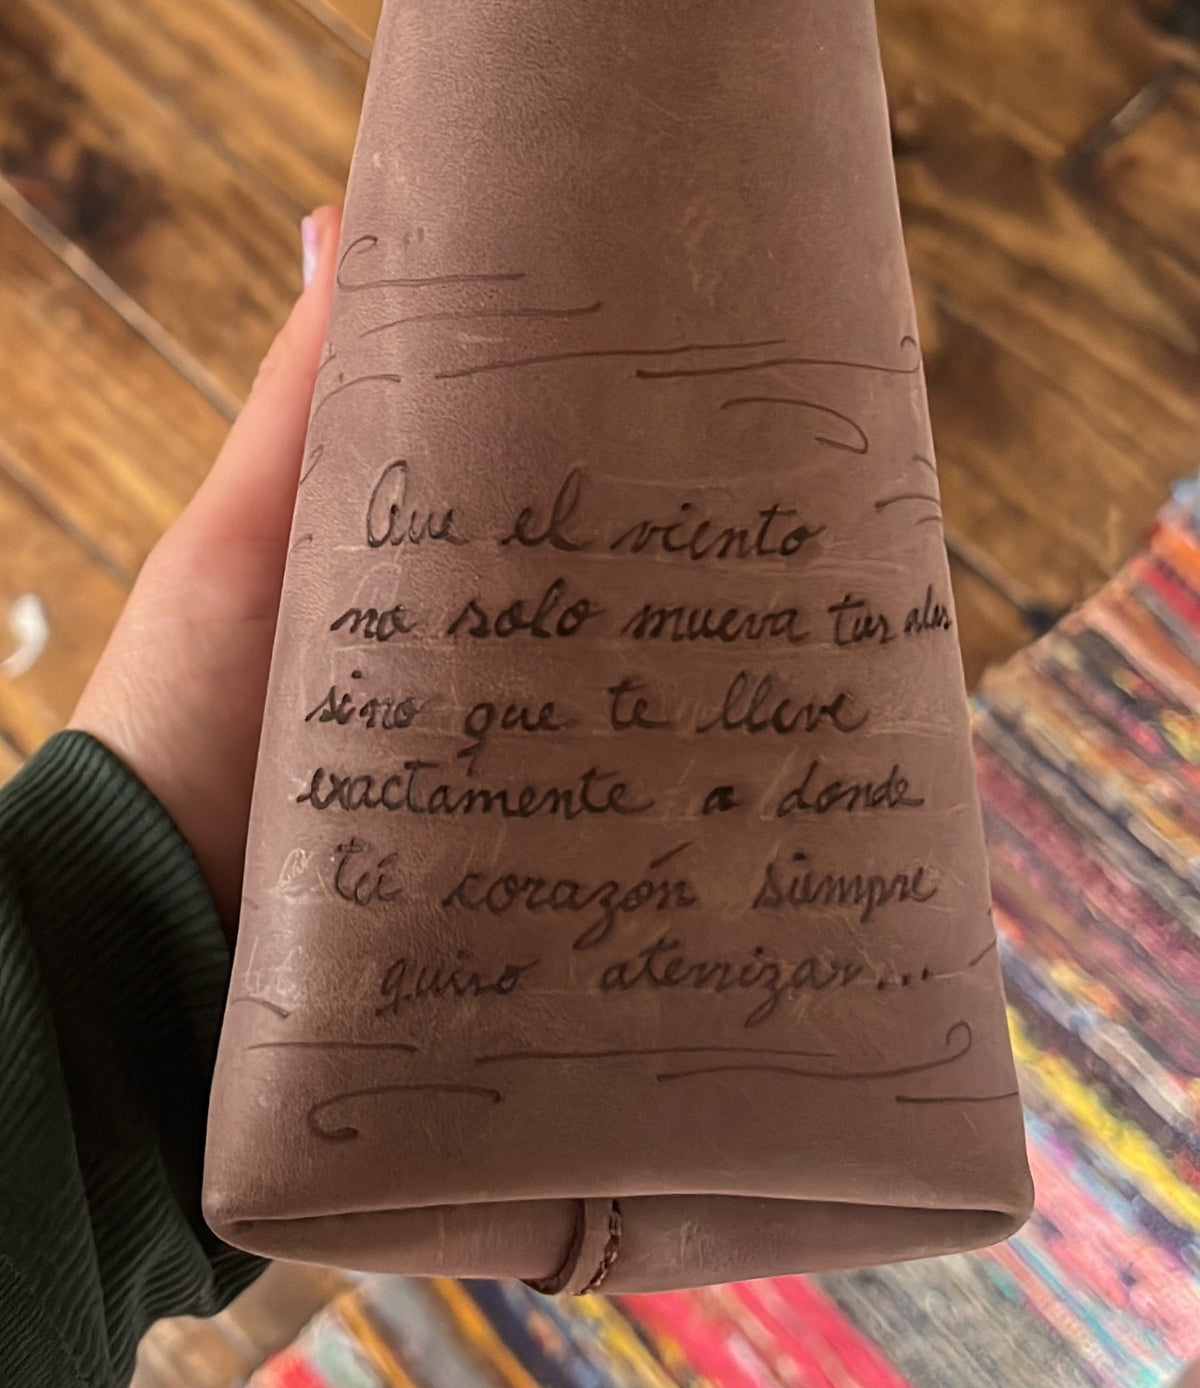 Que el viento
no solo mueva tus alas
sino que te lleve
exactamente a donde
tú corazón siempre
quiso aterrizar...